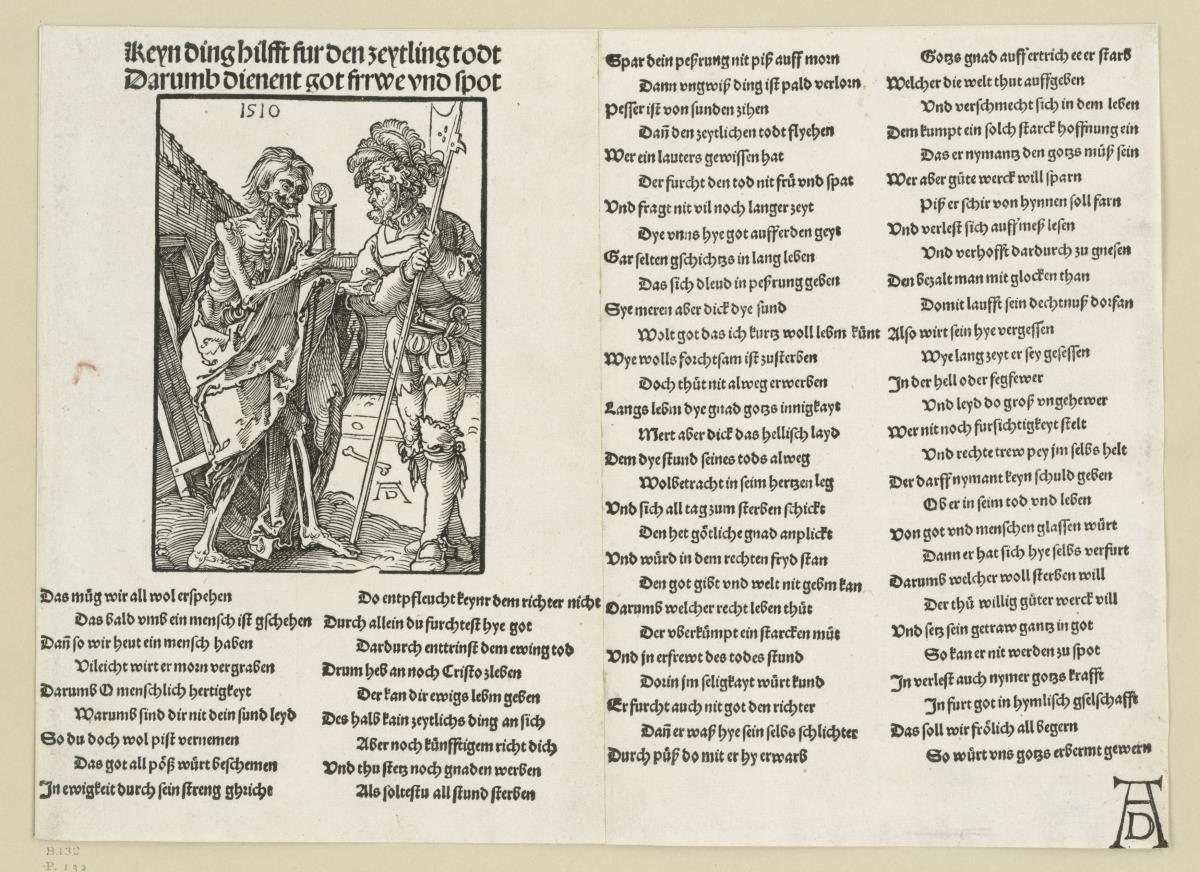 Keyn ding hilfft fur den zeytling todt
Darumb dienent got frrwe vnd spot
1510
AD
Das müg wir all wol erspehen
Das bald vmb ein mensch ist gschehen
Dan̄ so wir heut ein mensch haben
Vileicht wirt er morn vergraben
Darumb O menschlich hertigkeyt
Warumb sind dir nit dein sund leyd
So du doch wol pist vernemen
Das got all pöß würt beschemen
In ewigkeit durch sein streng ghricht
Do entpfleucht keynr dem richter nicht
Durch allein du furchtest hye got
Dardurch enttrinst dem ewing tod
Drum heb an noch Cristo zleben
Der kan dir ewigs lebm geben
Des halb kain zeytlichs ding an sich
Aber noch künfftigem richt dich
Vnd thu stetz noch gnaden werben
Als soltestu all stund sterben
Spar dein peßrung nit piß auff morn
Dann vngwiß ding ist pald verlorn
Pesser ist von sunden zihen
Dan̄ den zeytlichen todt flyehen
Wer ein lauters gewissen hat
Der furcht den tod nit frü vnd spat
Vnd fragt nit vil noch langer zeyt
Dye vnns hye got aufferden geyt
Gar selten gschichtzs in lang leben
Das sich dleud in peßrung geben
Sye meren aber dick dye sund
Wolt got das ich kurtz woll lebm künt
Wye wolls forchtsam ist zusterben
Doch thüt nit alweg erwerben
Langs lebm dye gnad gotzs innigkayt
Mert aber dick das hellisch layd
Dem dye stund seines tods alweg
Wolbetracht in seim hertzen leg
Vnd sich all tag zum sterben schickt
Den het götliche gnad anplickt
Vnd würd in dem rechten fryd stan
Den got gibt vnd welt nit gebm kan
Darumb welcher recht leben thüt
Der vberkümpt ein starcken müt
Vnd jn erfrewt des todes stund
Dorin jm seligkayt würt kund
Er furcht auch nit got den richter
Dan̄ er waß hye sein selbs schlichter
Durch püß do mit er hy erwarb
Gotzs gnad auff ertrich ee er starb
Welcher die welt thut auffgeben
Vnd verschmecht sich in dem leben
Dem kumpt ein solch starck hoffnung ein
Das er nymantz den gotzs müß sein
Wer aber güte werck will sparn
Piß er schir von hynnen soll farn
Vnd verlest sich auff meß lesen
Vnd verhofft dardurch zu gnesen
Den bezalt man mit glocken than
Domit laufft sein dechtnuß dorfan
Also wirt sein hye vergessen
Wye lang zeyt er sey gesessen
In der hell oder fegfewer
Vnd leyd do groß vngehewer
Wer nit noch fursichtigkeyt stelt
Vnd rechte trew pey jm selbs helt
Der darff nymant keyn schuld geben
Ob er in seim tod vnd leben
Von got vnd menschen glassen würt
Dann er hat sich hye selbs verfurt
Darumb welcher woll sterben will
Der thü willig güter werck vill
Vnd setz sein getraw gantz in got
So kan er nit werden zu spot
In verlest auch nymer gotzs krafft
In furt got in hymlisch gselschafft
Das soll wir frölich all begern
So würt vns gotzs erbermt gewern
AD
B.132
P. 132